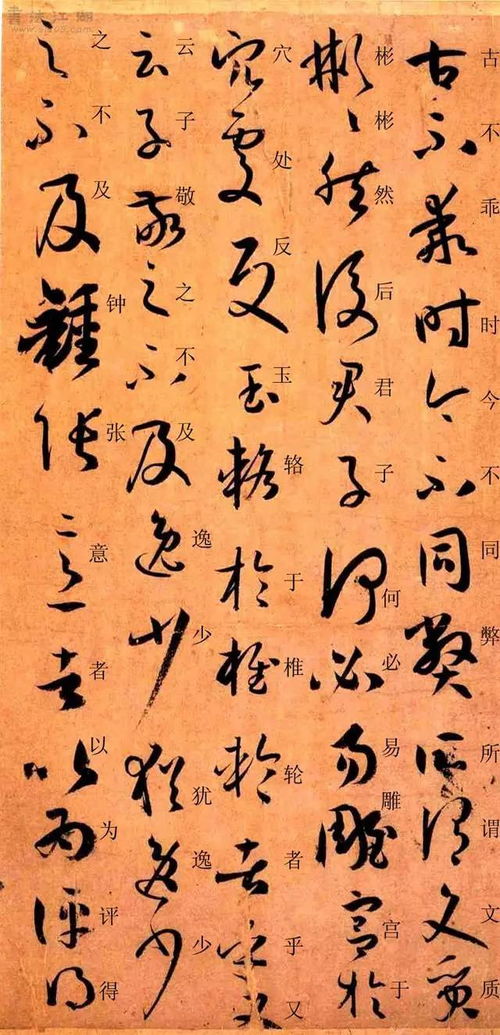 書法江湖
古不乖时今不同弊所谓文质
古不乖時今不同弊所謂文質
彬彬然后君子何必易雕宫于
彬〻然後君子何必易雕宮於
穴处反玉辂于椎轮者乎又
穴處反玉輅於椎輪者乎又
云子敬之不及逸少犹逸少
云子敬之不及逸少猶逸少
之不及钟张意者以为评得
之不及鍾張意者以為評得